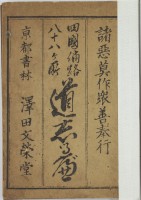 諸惡莫作衆善奉行
四國徧路
八十八ヶ所
道志る遍
京都書林
澤田文榮堂